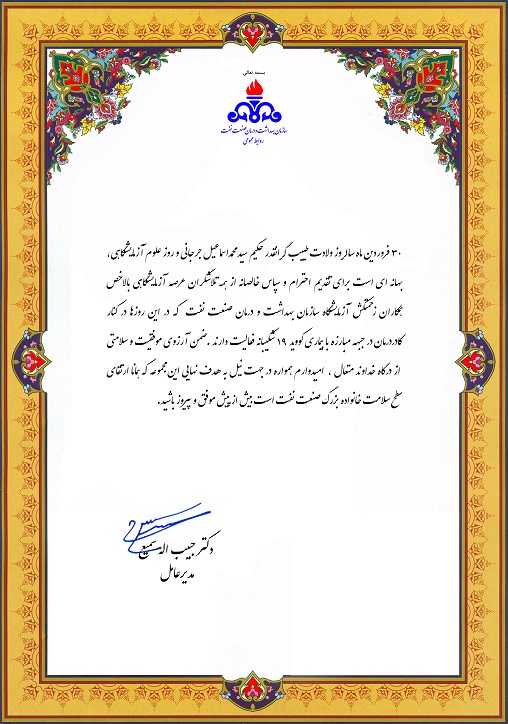 بسمه تعالی
سازمان بهداشت و درمان صنعت نفت
روابط عمومی
۳۰ فروردین ماه سالروز ولادت طبیب گرانقدر حکیم سید محمد اسماعیل جرجانی و روز علوم آزمایشگاهی،
بهانه ای است برای تقدیم احترام و سپاس خالصانه از همه تلاشگران عرصه آزمایشگاهی بالاخص
همکاران زحمتکش آزمایشگاه سازمان بهداشت و درمان صنعت نفت که در این روزها در کنار
کادر درمان در جبهه مبارزه با بیماری کووید ۱۹ شکیبانه فعالیت دارند. ضمن آرزوی موفقیت و سلامتی
از درگاه خداوند متعال ، امیدوارم همواره در جهت نیل به هدف نهایی این مجموعه که همانا ارتقای
سطح سلامت خانواده بزرگ صنعت نفت است بیش از پیش موفق و پیروز باشید.
دکتر حبیب اله سمیع
مدیرعامل